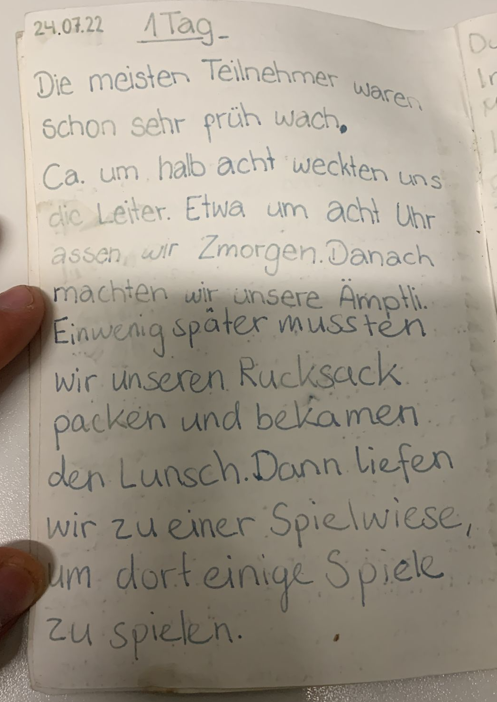 24.07.22 1 Tag
Die meisten Teilnehmer waren
schon sehr prüh wach.
Ca. um halb acht weckten uns
die Leiter. Etwa um acht Uhr
assen wir Zmorgen. Danach
machten wir unsere Ämptli.
Einwenig später mussten
wir unseren Rucksack
packen und bekamen
den Lunsch. Dann liefen
wir zu einer Spielwiese,
um dort einige Spiele
zu spielen.